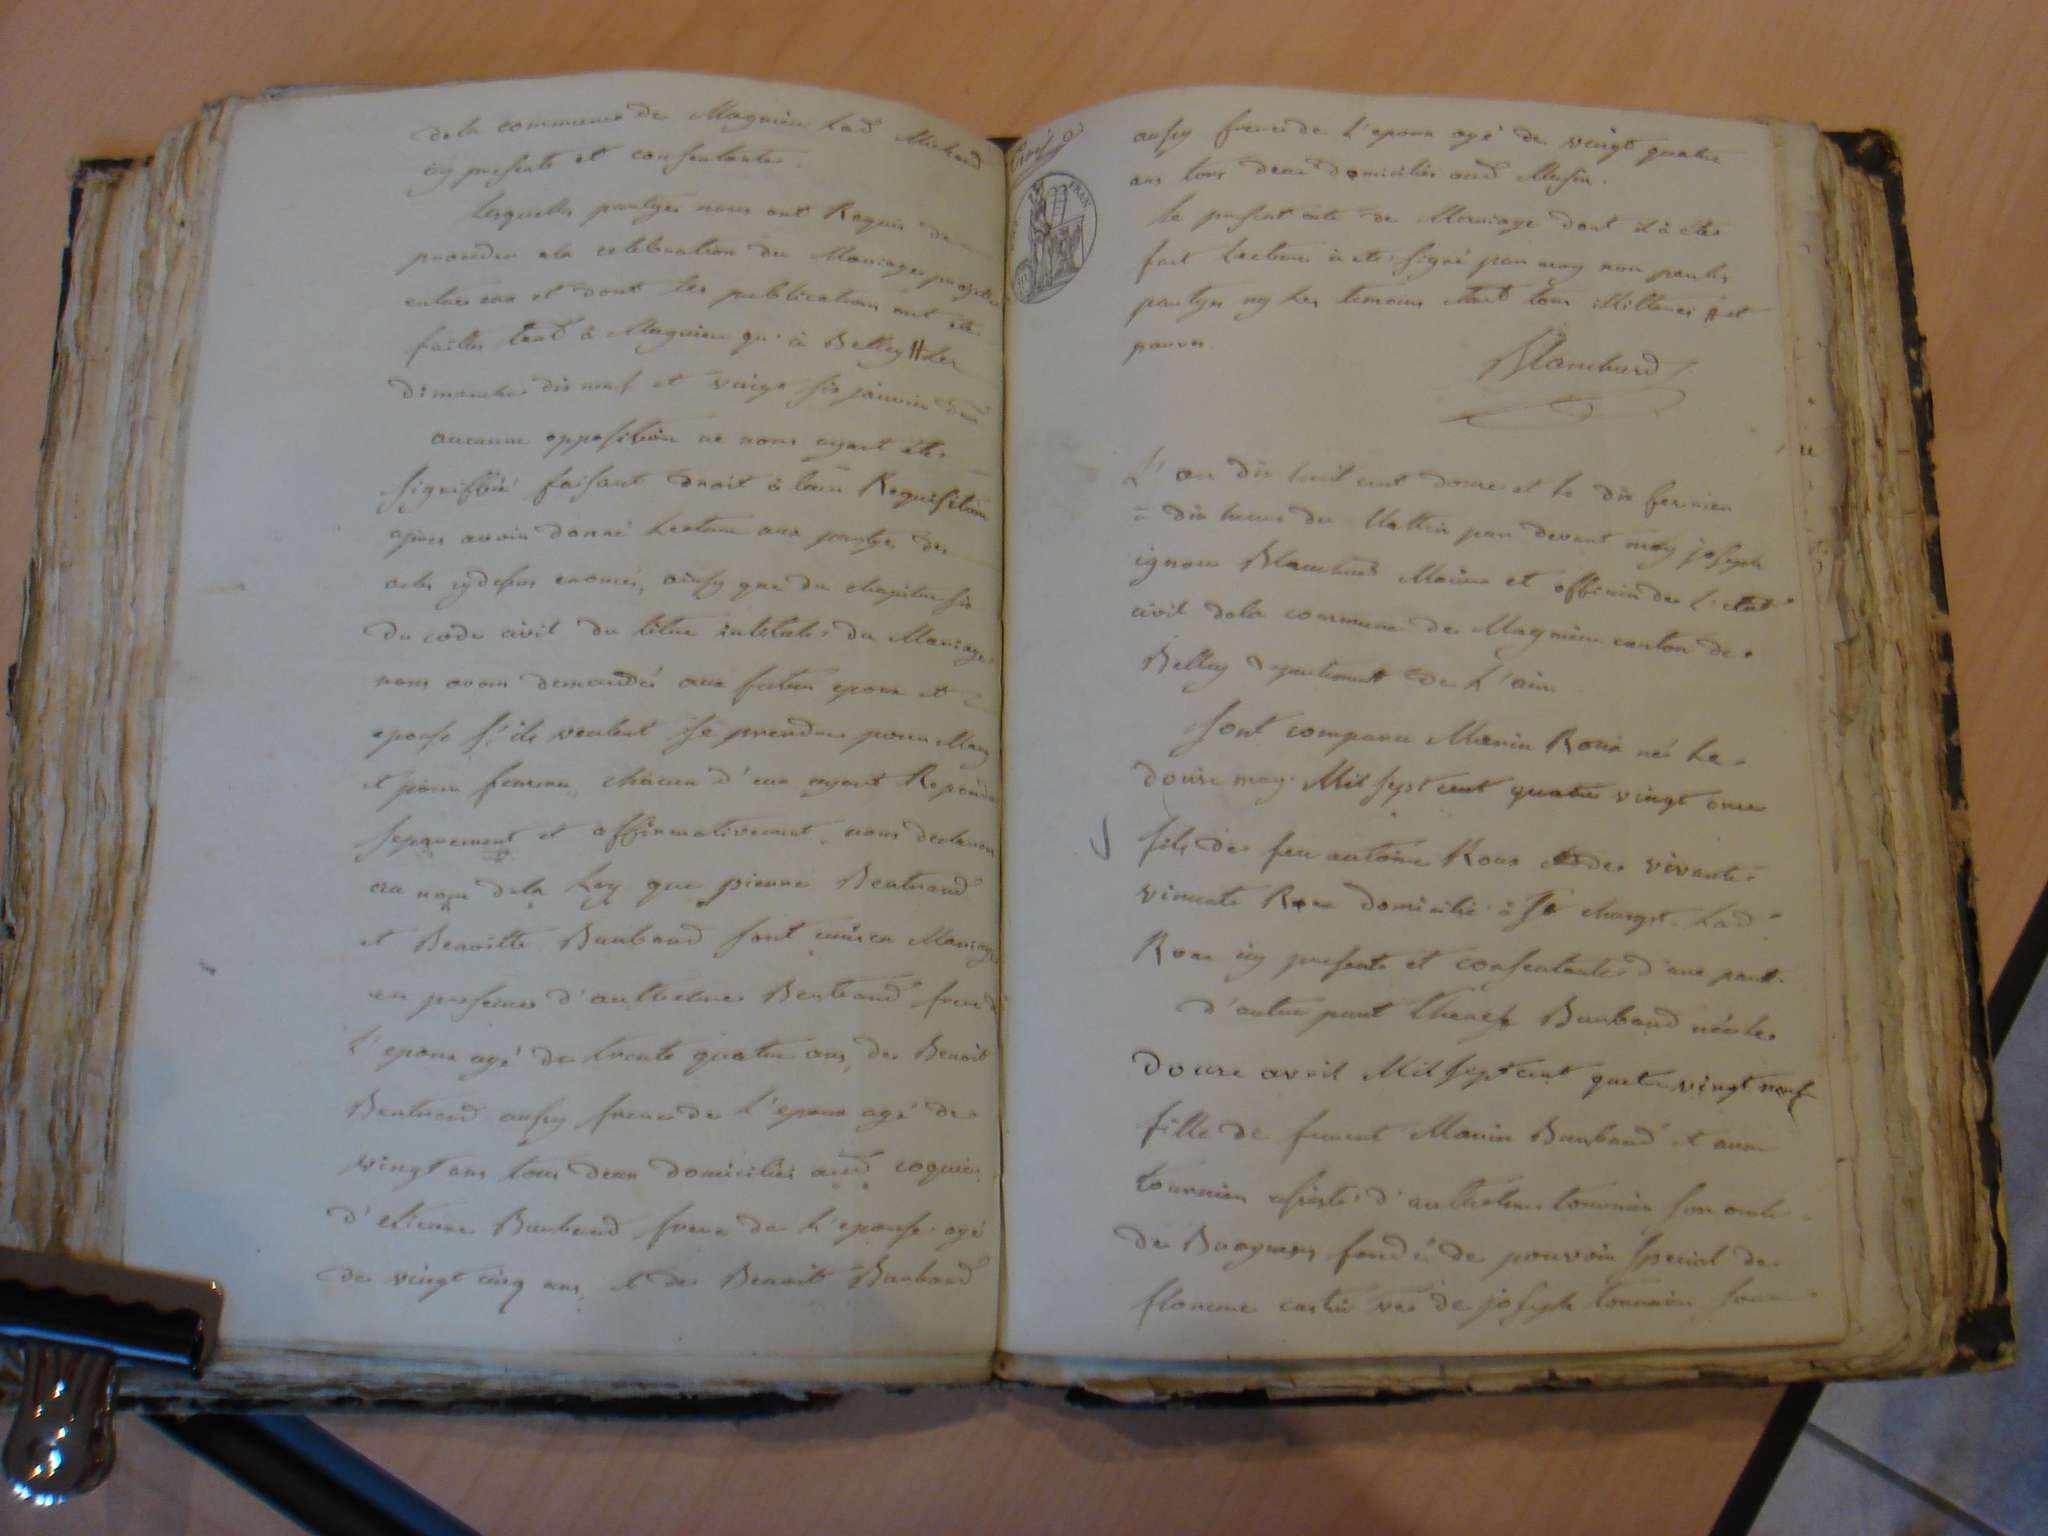 dela commune de Magnieu Lad Michaud
icy presente et consentante.
Lesquelles partyes nous ont Requis de
proceder ala celebration du Mariage projetté
entre eux et dont les publications ont été
faittes tant à Magnieu qu'à Belley # Les
dimanches dix neuf et vingt six janvier
aucune opposition ne nous ayant étés
signiffié faisant droit à leur Requisition
apres avoir donné Lecture aux partyes des
actes cydessus enoncés, ainsy que du chapitre six
du code civil du titre intitulé du Mariage
nous avons demandés aux futurs epoux et
epouse s'ils veulent se prendre pour Mary
et pour femme, chacun d'eux ayant Repondu
separement et affirmativement, nous declarons
au nom dela Loy que pierre Bertrand
et Benoitte Barbaud sont unis en Mariage
en presence d'anthelme Bertrand frere de
L'epoux agé de trente quatre ans, de Benoit
Bertrand aussy frere de L'epoux agé de
vingt ans tous deux domiciliés aud coquin
d'etienne Barbaud frere de L'epouse agé
de vingt cinq ans, et de Benoit Barbaud
aussy frere de L'epoux agé de vingt quatre
ans tous deux domiciliés aud
Le present acte de Mariage dont il à étés
fait Lecture à etés signé par moy non par les
partyes ny Les temoins etant tous illitterés # et
pauvres.
Blanchard
L'an dix huit cent douze et le dix fevrier
à dix heures du Mattin par devant moy joseph
ignace Blanchard Maire et officier de L'etat
civil dela commune de Magnieu canton de
Belley departement de L'ain
Sont comparu Marin Roux né Le
douze may Mil sept cent quatre vingt onze
fils de feu antoine Roux et de vivante
vincente Roux domicilié à St champt. Lad
Roux icy presente et consentante d'une part.
d'autre part therese Barbaud née Le
douze avril Mil sept cent quatre vingt neuf
fille de furent Marin Barbaud et anne
tournier assisté d'anthelme tournier son oncle
de fondé de pouvoir special de
de joseph tournier son